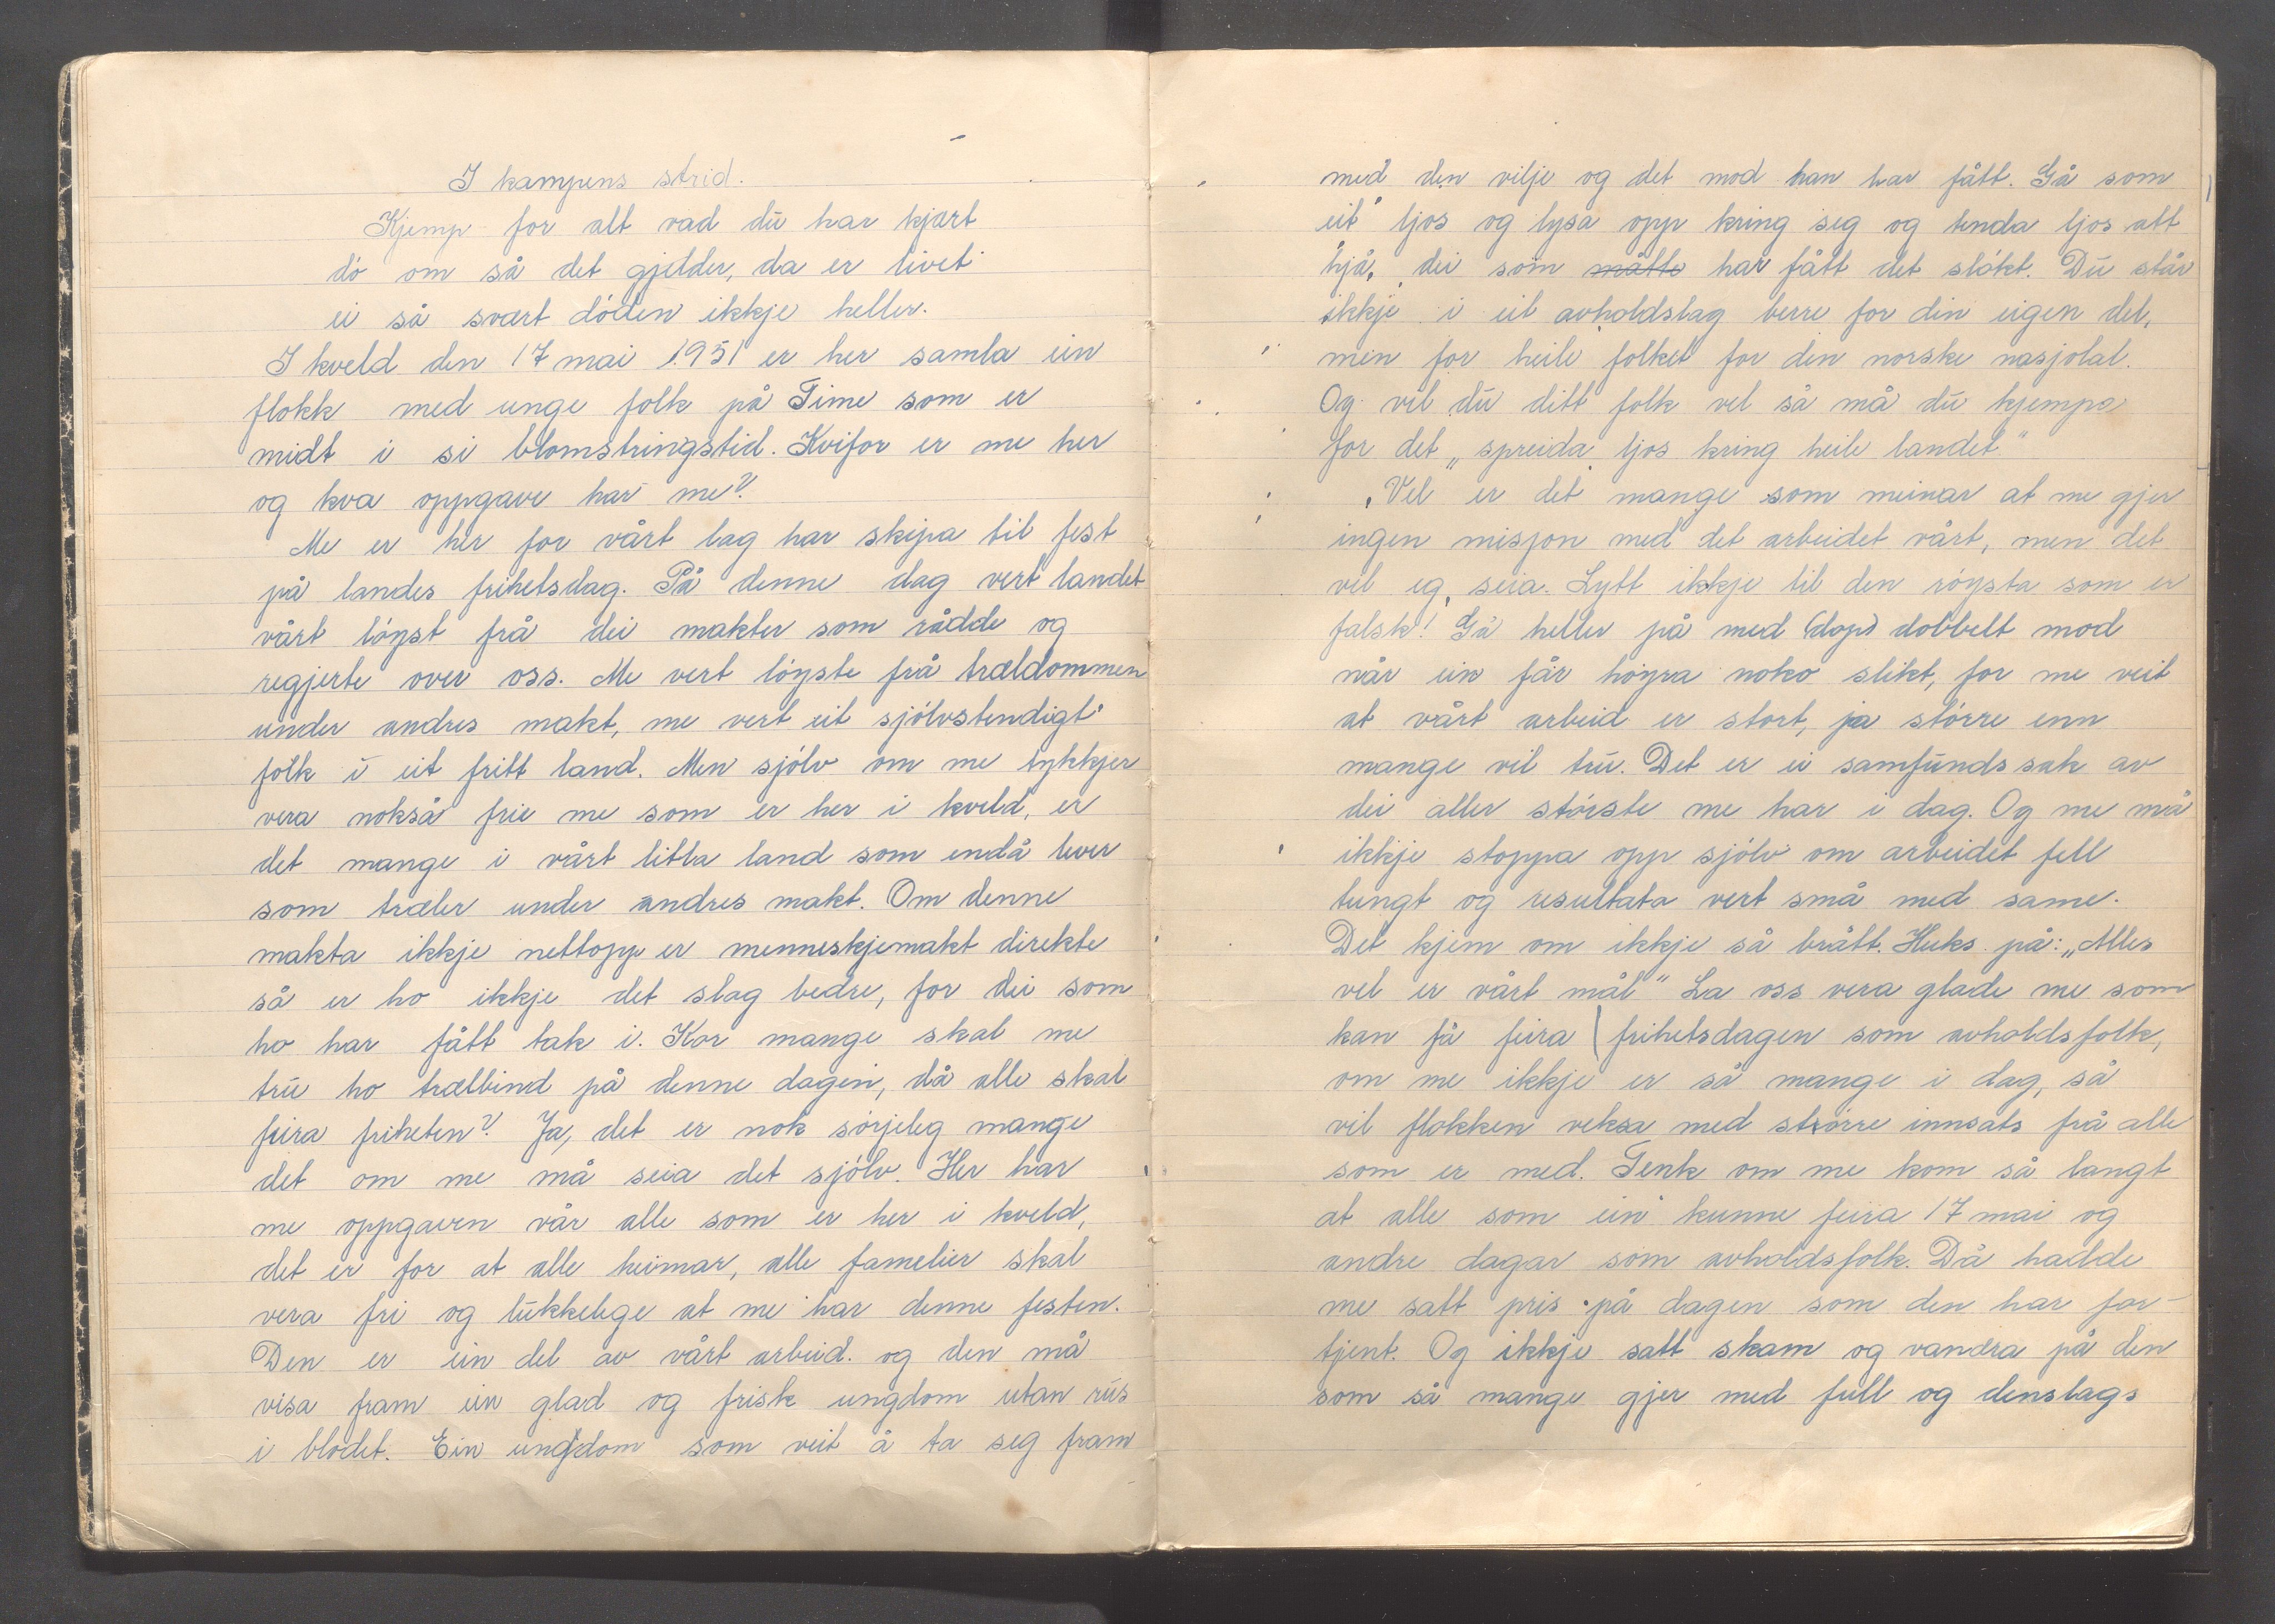 I kampens strid.
Kjemp for alt vad du har kjært
dö om så det gjelder, da er livet
ei så svært döden ikkje heller.
I kveld den 17 mai 1951 er her samla ein
flokk med unge folk på Time som er
midt i si blomstringstid. Kvifor er me her
og kva oppgave har me?
Me er her for vårt lag har skipa til fest
på landes frihetsdag. På denne dag vert landet
vårt löyst frå dei makter som rådde og
regjerte over oss. Me vert löyste frå trældommen
under andres makt, me vert eit sjölvstendigt
folk i eit fritt land. Men sjölv om me tykkjer
vera nokså frie me som er her i kveld, er
det mange i vårt litla land som endå lever
som træler under andres makt. Om denne
makta ikkje nettopp er menneskjemakt direkte
så er ho ikkje det slag bedre, for dei som
ho har fått tak i. Kor mange skal me
tru ho trælbind på denne dagen, då alle skal
feira friheten? Ja, det er nok sörjeleg mange
det om me må seia det sjölv. Her har
me oppgaven vår alle som er her i kveld,
det er for at alle heimar, alle famelier skal
vera fri og lukkelege at me har denne festen.
Den er ein del av vårt arbeid. og den må
visa fram ein glad og frisk ungdom utan rus
i blodet. Ein ungdom som veit å ta seg fram
med den vilje og det mod han har fått. Gå som
eit ljos og lysa opp kring seg og tenda ljos att
hjå, dei som måtte har fått det slökt. Du står
ikkje i eit avholdslag berre for din eigen del,
men for heile folket for den norske nasjolal.
Og vil du ditt folk vel så må du kjempa
for det „spreida ljos kring heile landet"
Vel er det mange som meinar at me gjer
ingen misjon med det arbeidet vårt, men det
vil eg, seia. Lytt ikkje til den röysta som er
falsk! Gå heller på med (dop) dobbelt mod
når ein får höyra noko slikt, for me veit
at vårt arbeid er stort, ja större enn
mange vil tru. Det er ei samfunds sak av
dei aller störste me har i dag. Og me må
ikkje stoppa opp sjölv om arbeidet fell
tungt og resultata vert små med same.
Det kjem om ikkje så brått. Huks på: „Alles
vel er vårt mål" La oss vera glade me som
kan få feira frihetsdagen som avholdsfolk,
om me ikkje er så mange i dag, så
vil flokken veksa med större innsats frå alle
som er med. Tenk om me kom så langt
at alle som ein kunne feira 17 mai og
andre dagar som avholdsfolk. Då hadde
me satt pris på dagen som den har for-
tjent. Og ikkje satt skam og vandra på den
som så mange gjer med full og denslags